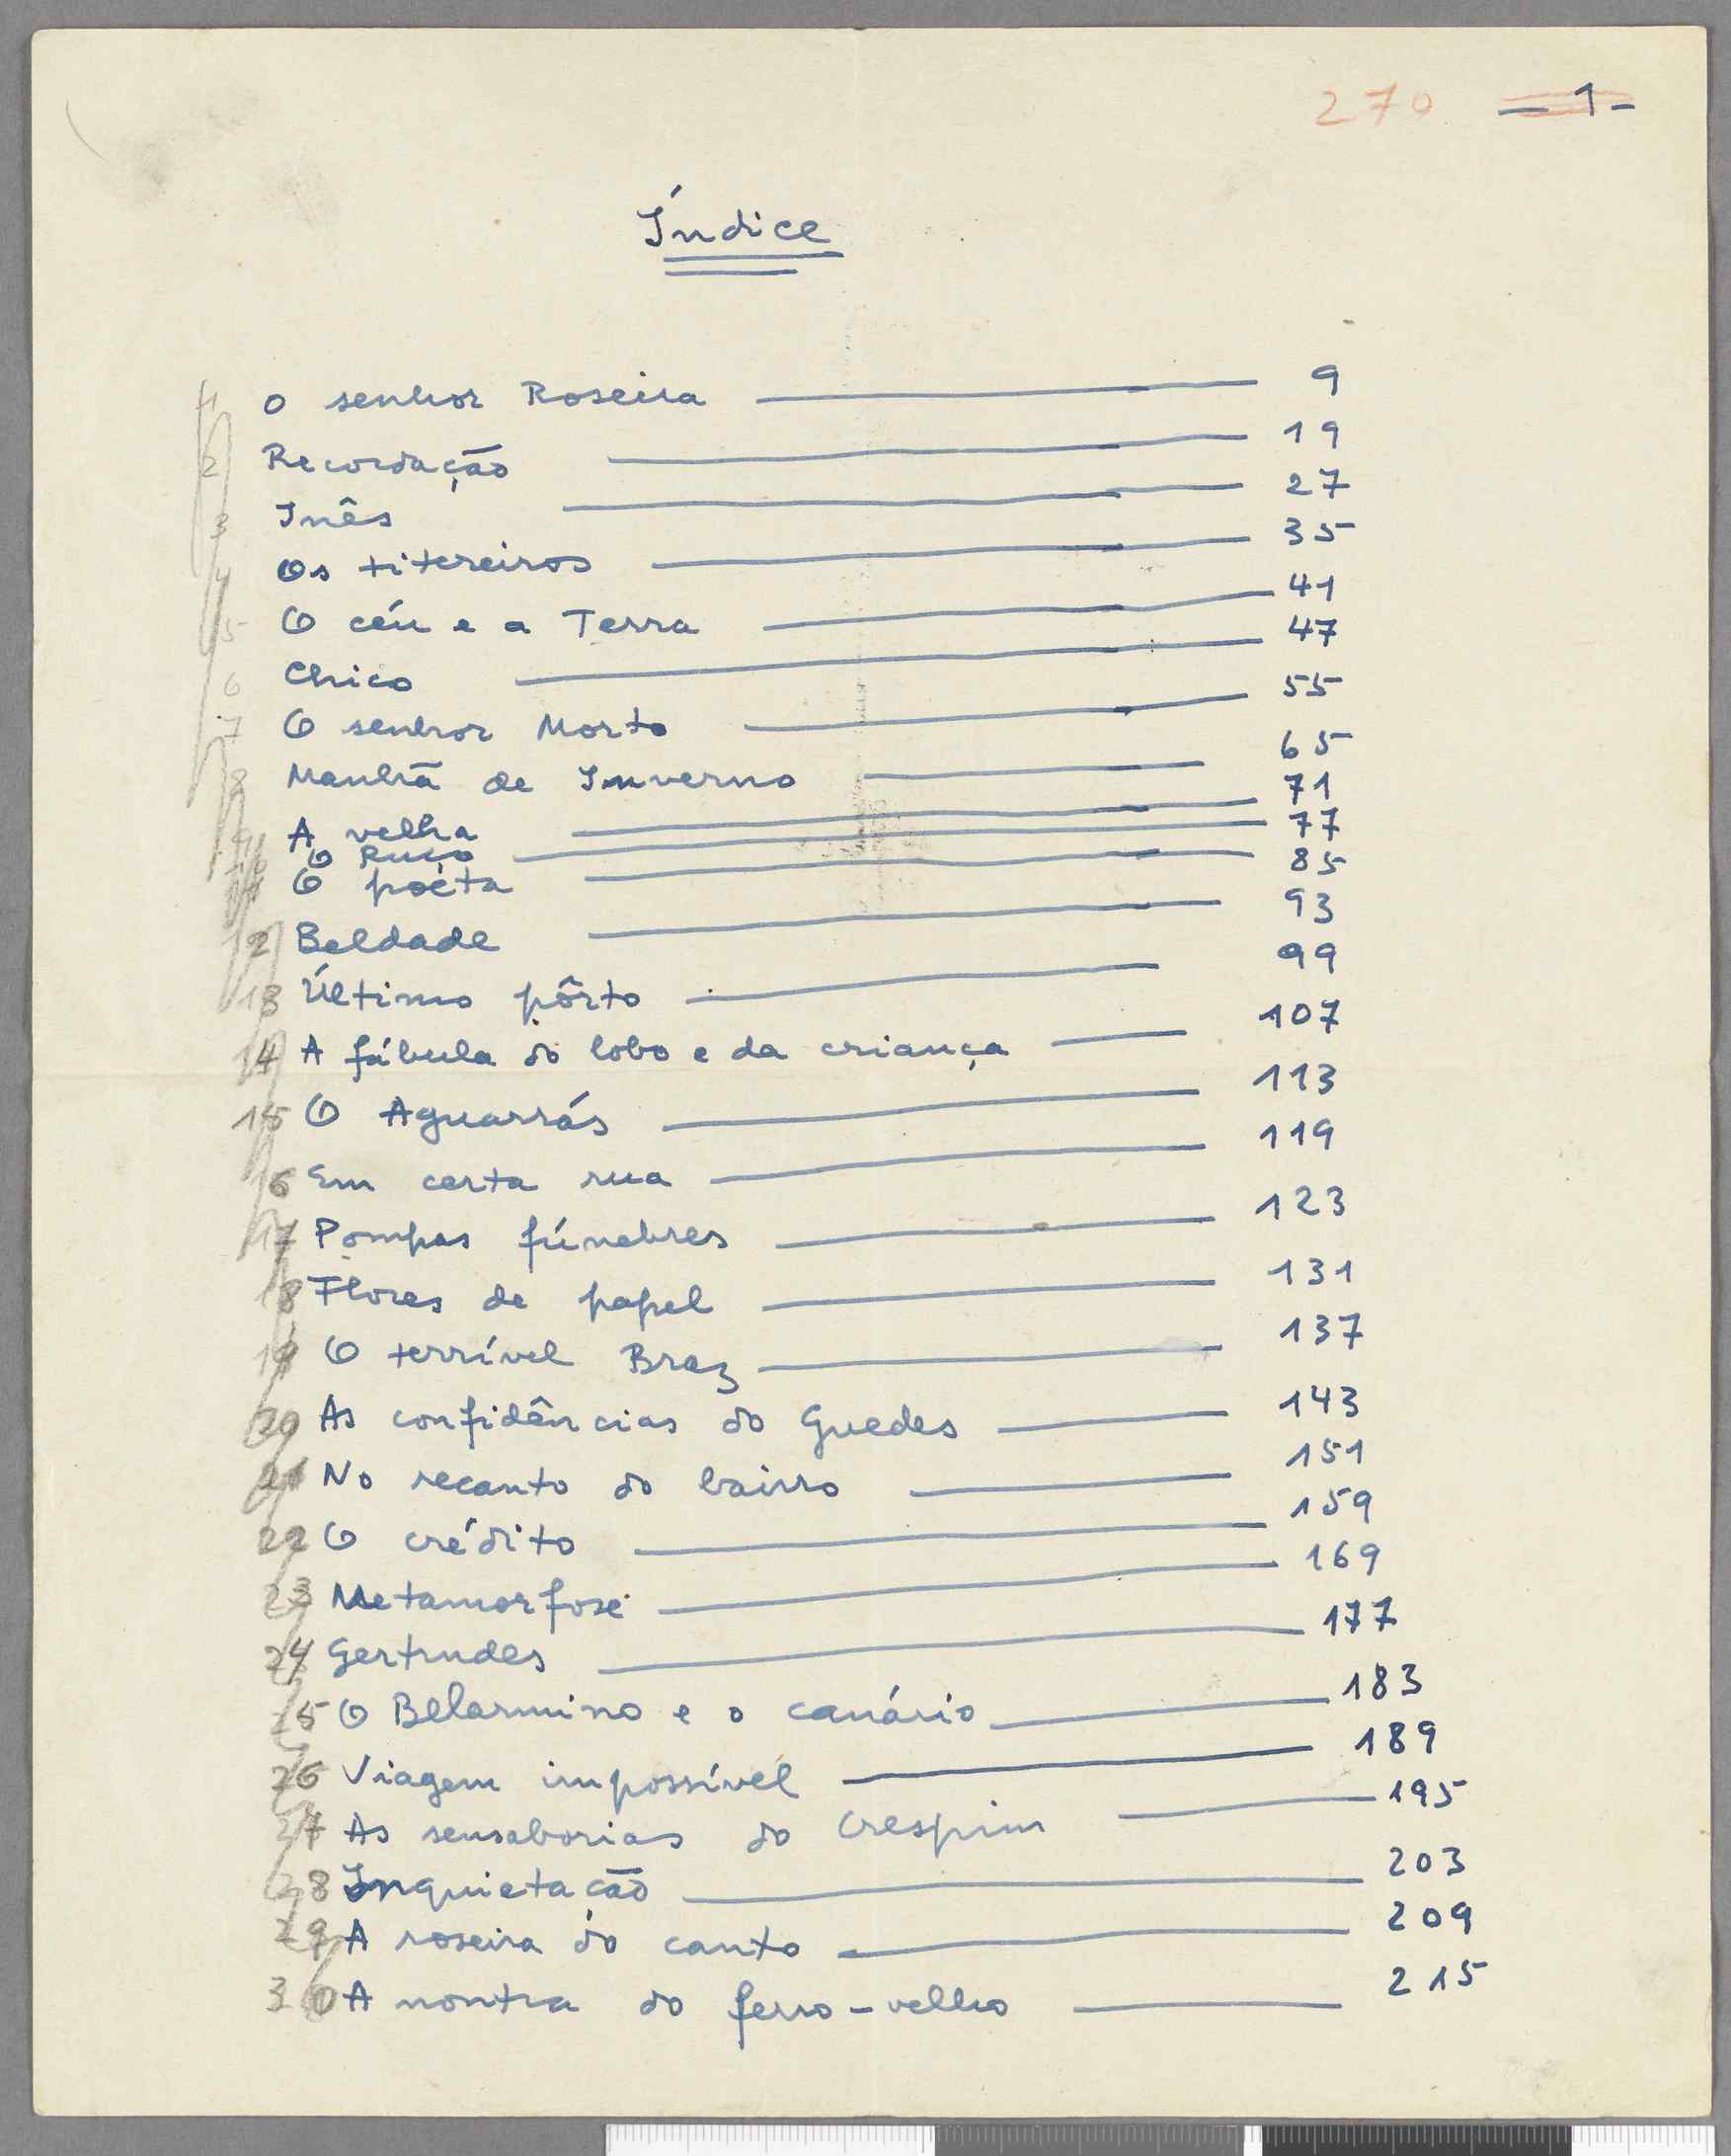 270 - 1 -
Índice
1 O senhor Roseira 9
2 Recordação 19
3 Inês 27
4 Os titereiros 35
5 O céu e a Terra 41
6 Chico 47
7 O senhor Morto 55
8 Manhã de Inverno 65
9 A velha 71
10 O Ruço 77
11 O poéta 85
12 Beldade 93
13 Último pôrto 99
14 A fábula do lobo e da criança 107
15 O Aguarrás 113
16 Em certa rua 119
17 Pompas fúnebres 123
18 Flores de papel 131
19 O terrível Braz 137
20 As confidências do Guedes 143
21 No recanto do bairro 151
22 O crédito 159
23 Metamorfose 169
24 Gertrudes 177
25 O Belarmino e o canário 183
26 Viagem impossível 189
27 As sensaborias do Crespim 195
28 Inquietação 203
29 A roseira do canto 209
30 A montra do ferro-velho 215